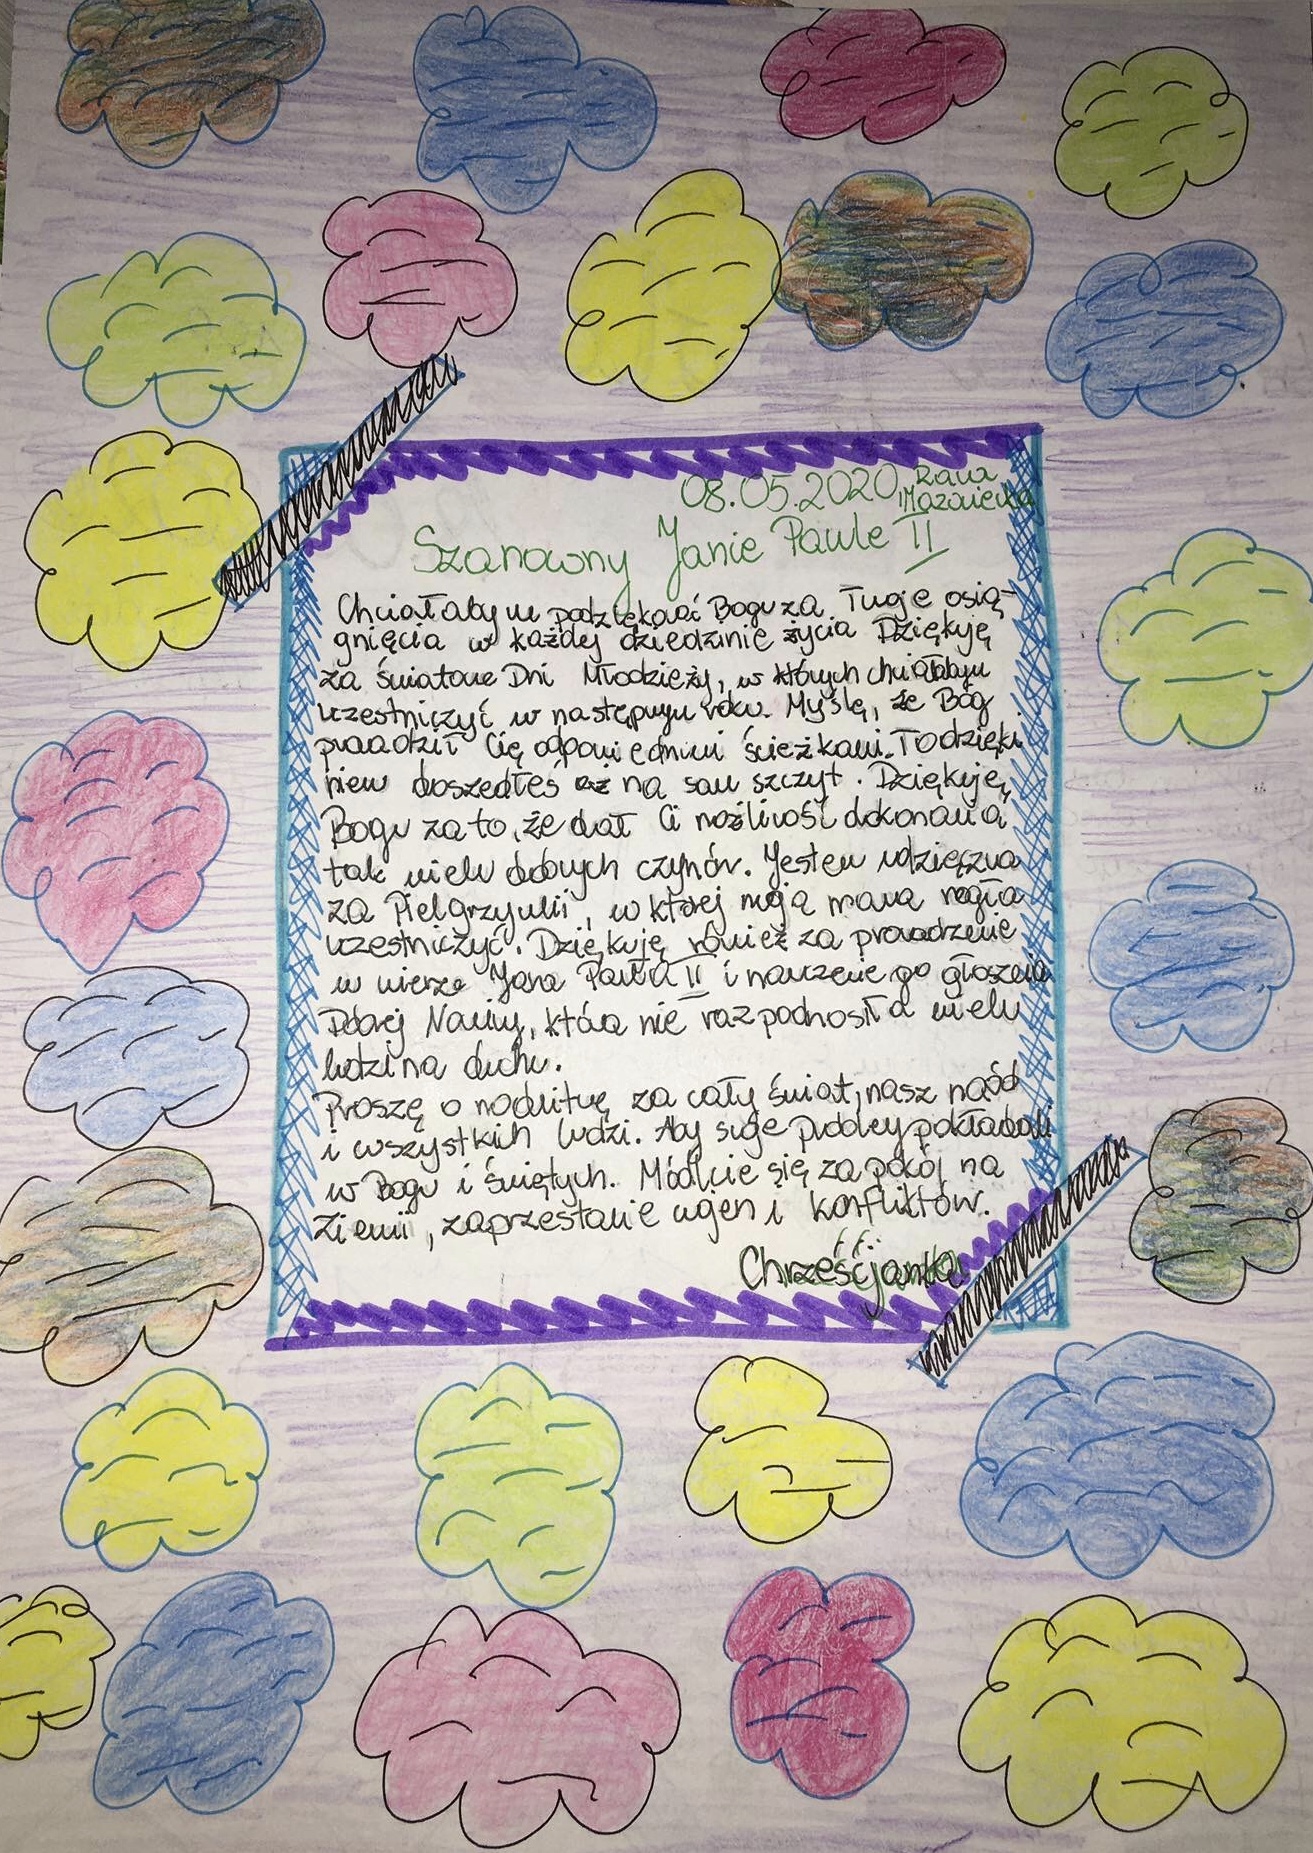 08.05.2020, Rawa
Mazowiecka
Szanowny Janie Pawle II
Chciałabym podziękować Bogu za Twoje osią-
gnięcia w każdej dziedzinie życia Dziękuję
za Światowe Dni Młodzieży, w których chciałabym
uczestniczyć w następnym roku. Myślę, że Bóg
prowadził Cię odpowiednimi ścieżkami. To dzięki
niem doszedłeś aż na sam szczyt. Dziękuję,
Bogu za to, że dał Ci możliwość dokonania
tak wielu dobrych czynów. Jestem wdzięczna
za Pielgrzymki, w której moja mama mogła
uczestniczyć. Dziękuję również za prowadzenie
w wierze Jana Pawła II i nauczenie go głoszenia
Dobrej Nowiny, która nie raz podnosiła wielu
ludzi na duchu.
Proszę o modlitwę za cały świat, nasz naród
i wszystkich ludzi. Aby swoje pokładali
w Bogu i świętych. Módlcie się za pokój na
ziemii, zaprzestanie wojen i konfliktów.
Chrześcijanka